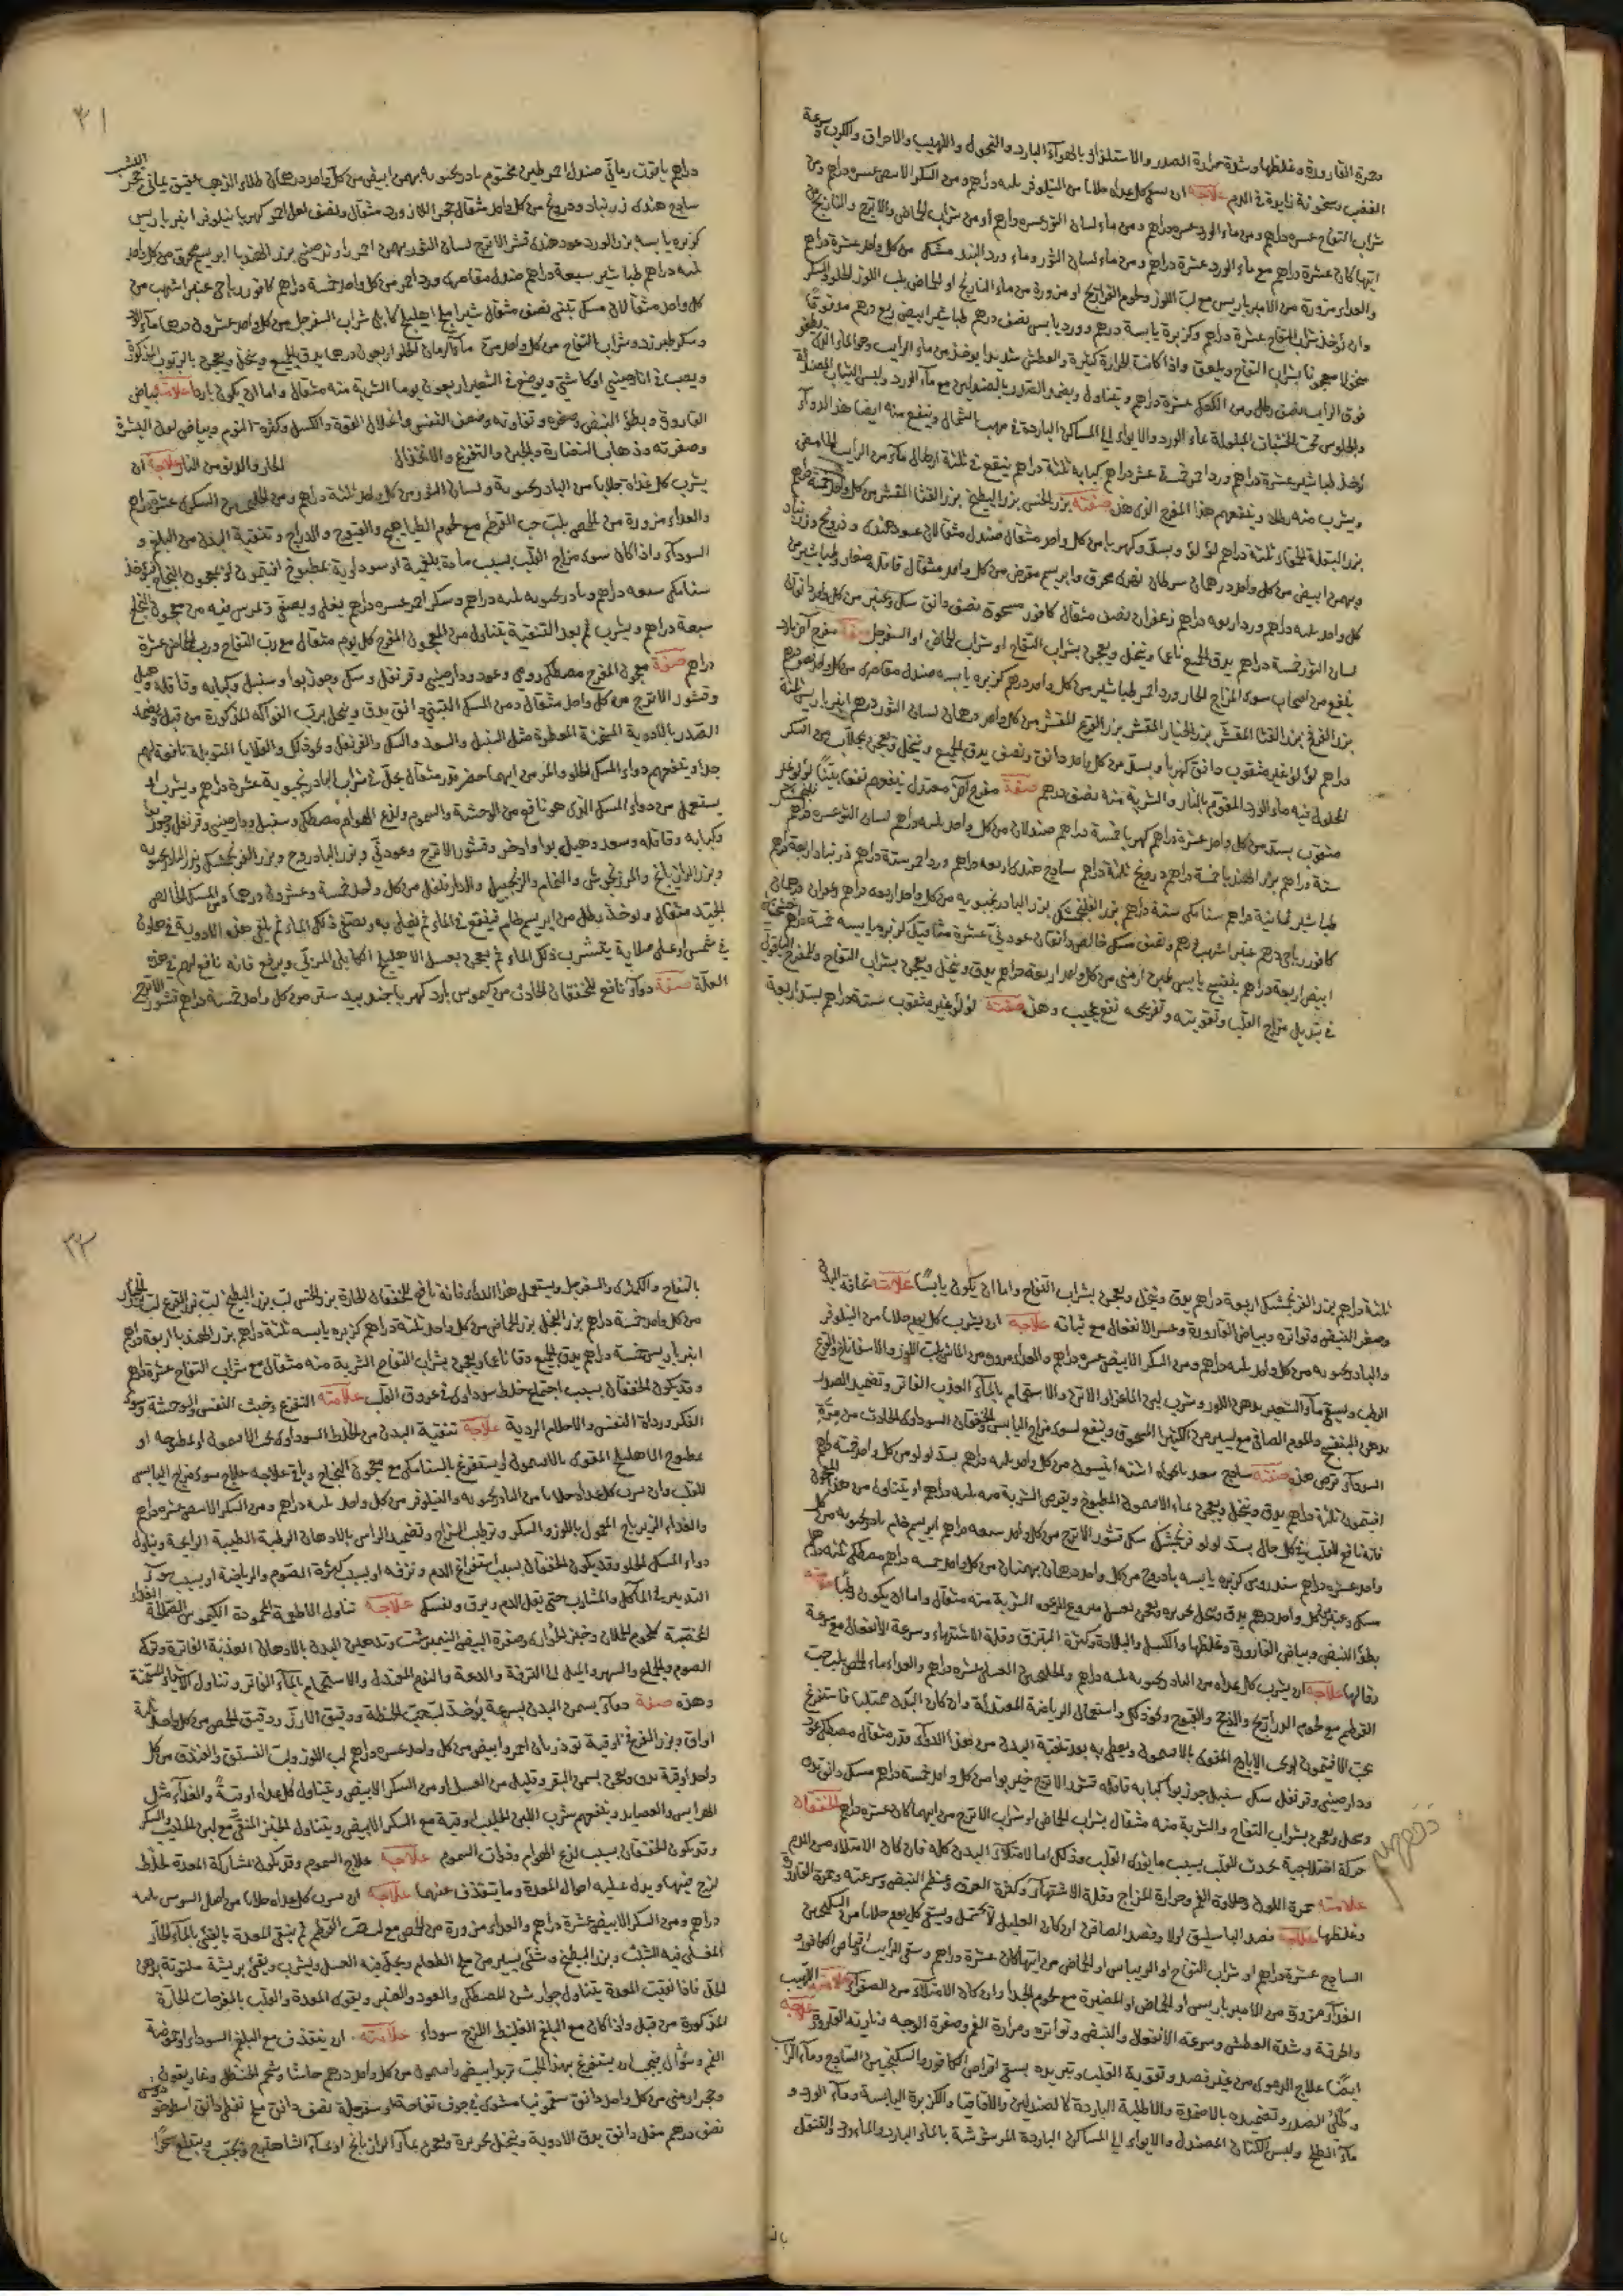 وحمرة القارورة وغلظها وشدة حرارة الصدر والاستلذاذ بالهواء البارد والنحول واللهيب والاحراق والكرب وسرعة
الغضب وسخونة زايدة في الدم علاجه ان يسقى كل غداة جلابا من النيلوفر ثلثه دراهم ومن السكر الابيض عشره دراهم ومن
شراب التفاح عشره دراهم ومن ماء الورد عشره دراهم ومن ماء لسان الثور عشره دراهم او من شراب الحماض والاترج والنارنج من
ايها كان عشرة دراهم مع ماء الورد عشرة دراهم ومن ماء لسان الثور وماء ورد من كل واحد عشرة دراهم
والغداء مزورة من الامبرباريس مع لب اللوز ولحوم الفراريج او مزورة من ماء النارنج او الحماض بلب اللوز الحلو والسكر
وان يؤخذ شراب التفاح عشرة دراهم وكزبرة يابسة درهم وورد يابس نصف درهم طباشير ابيض ربع درهم مدقوقا
منخولا معجونا بشراب التفاح ويلعق واذا كانت الحرارة كثيرة والعطش شديدا يوخذ من ماء الرايب وهو الماء الذي يطفو
فوق الرايب نصف رطل ومن الكعك عشرة دراهم ويتناول ويضمد الصدر بالصندلين مع ماء الورد ولبس الثياب المصندلة
والجلوس تحت الخيشات المبلولة بماء الورد والايواء الى المساكن الباردة في مهب الشمال وينفع منه ايضا هذا الدواء
يؤخذ طباشير عشرة دراهم ورد احمر خمسة عشر دراهم كبابه ثلثة دراهم ينقع في ثلثة ارطال ماء من الرايب الحامض
ويشرب منه رطل وينفعهم هذا المفرح الذي هذه صفته بزر الخس بزر البطيخ بزر القثا المقشر من كل واحد خمسة دراهم
بزر البقلة الحمقاء ثلثة دراهم لؤلؤ وبسد وكهربا من كل واحد مثقال صندل مثقالان عود هندي ودرونج وزرنباد
وبهمن ابيض من كل واحد درهمان سرطان نهري محرق وابريسم مقرض من كل واحد مثقال قاقله صغار وطباشير من
كل واحد ثلثه دراهم ورد اربعه دراهم زعفران نصف مثقال كافور مسحوق نصف دانق مسك وعنبر من كل واحد دانق
لسان الثور خمسة دراهم يدق الجميع ناعما وينخل ويعجن بشراب التفاح او شراب الحماض او السفرجل صفة مفرح اخر بارد
ينفع من اصحاب سوء المزاج الحار ورد احمر طباشير من كل واحد درهم كزبره يابسه صندل مقاصري من كل واحد نصف درهم
بزر الفرفخ بزر القثا المقشر بزر الخيار المقشر بزر القرع المقشر من كل واحد درهمان لسان الثور درهم امبرباريس ثلثة
دراهم لؤلؤ غير مثقوب دانق كهربا وبسد من كل واحد دانق ونصف يدق الجميع وينخل ويعجن بجلاب من السكر
المحلول فيه ماء الورد المقوم بالنار والشربة منه نصف درهم صفة مفرح اخر معتدل ينفعهم نفعا بينا لؤلؤ غير
مثقوب بسد من كل واحد عشرة دراهم كهربا خمسة دراهم صندلان من كل واحد ثلثه دراهم لسان الثور عشره دراهم
ستة دراهم بزر الهندبا خمسة دراهم درونج ثلثة دراهم ساذج هندي اربعه دراهم ورد احمر ستة دراهم زرنباد اربعة دراهم
طباشير ثمانية دراهم سنا مكي ستة دراهم بزر الفلنجمشك بزر البادرنجبويه من كل واحد اربعه دراهم زعفران درهمان
كافور رياحي درهم عنبر اشهب درهم ونصف مسك خالص دانقان عود نيّ عشرة مثاقيل كزبره يابسه خمسة دراهم
ابيض اربعة دراهم بنفسج يابس طين ارمني من كل واحد اربعة دراهم يدق وينخل ويعجن بشراب التفاح وللمفرح الياقوتي
في تبديل مزاج القلب وتقويته وتفريحه نفع عجيب وهذه صفته لؤلؤ غير مثقوب ستة دراهم بسد اربعة
٣١
دراهم ياقوت رماني صندل احمر طين مختوم بادرنجبويه بهمن ابيض من كل واحد درهمان طلاء الذهب عقيق يماني حجر اليشب
ساذج هندي زرنباد ودرونج من كل واحد مثقال حجر اللازورد مثقال ونصف لعل احمر كهربا نيلوفر امبرباريس
كزبره يابسه بزر الورد عود هندي قشر الاترج لسان الثور بهمن احمر راوند صيني بزر الهندبا ابريسم محرق من كل واحد
ثلثه دراهم طباشير سبعة دراهم صندل مقاصري ورد احمر من كل واحد خمسة دراهم كافور رياحي عنبر اشهب من
كل واحد مثقالان مسك تبتي نصف مثقال شيراملج اهليلج كابلي شراب السفرجل من كل واحد عشرون درهما ماء
وسكر طبرزد وشراب التفاح من كل واحد ماء الرمان الحلو اربعون درهما يدق الجميع وينخل ويعجن
ويصب في انا صيني او كاشي ويوضع في الشعير اربعون يوما الشربة منه مثقال واما ان يكون باردا علامته بياض
القارورة وبطؤ النبض وصغره وتفاوته وضعف النفس وانحلال القوة والكسل وكثرة النوم وبياض لون البشرة
وصفرته وذهاب النضارة والجبن والتفزع والانخذال الحار والدنو من النار علاجه ان
يشرب كل غداة جلابا من البادرنجبوية ولسان الثور من كل واحد ثلثة دراهم ومن السكري عشرة دراهم
والغداء مزورة من الحمص بلب حب القرطم مع لحوم الطياهيج والقبوج والدراج وتنقية البدن من البلغم و
السوداء واذا كان سوء مزاج القلب بسبب مادة بلغمية او سوداوية بمطبوخ افتيمون او بمعجون النجاح
سنا مكي سبعه دراهم بادرنجبويه ثلثه دراهم وسكر احمر عشره دراهم يغلى ويصفى ويمرس فيه من معجون النجاح
سبعة دراهم ويشرب ثم بعد التنقية يتناول من المعجون المفرح كل يوم مثقال مع رب التفاح ورب الحماض عشرة
دراهم صفة معجون المفرح مصطكي رومي وعود ودارصيني وقرنفل وسك وجوزبوا وسنبل وكبابه وقاقله وهيل
وقشور الاترج من كل واحد مثقال ومن المسك التبتي دانق يدق وينخل برب الفواكه المذكورة من قبل ويضمد
الصدر بالادوية المسخنة العطرة مثل السنبل والسعد والسك والقرنفل ونحو ذلك والقلايا المتوبلة نافعة لهم
جدا وينفعهم دواء المسك الحلو والمر من ايهما حضر قدر مثقال يحل في شراب البادرنجبويه عشرة دراهم ويشرب او
يستعمل من دواء المسك الذي هو نافع من الوحشة والسموم ولدغ الهوام مصطكي وسنبل ودارصيني وقرنفل وجوزبوا
وكبابه وقاقله وسعد وهيل بوا واذخر وقشور الاترج وعود نيّ وبزر الباذروج وبزر الفرنجمشك بزر البادرنجبويه
وبزر الرازيانج والمرزنجوش والنمام والزنجبيل والدارفلفل من كل واحد خمسة وعشرون درهما ومن المسك الخالص
الجيد مثقال ويوخذ رطل من ابريسم خام فينقع في الماء ثم يغلى به ويصفى ذلك الماء ثم يلقى هذه الادوية في هاون
في شمس او على صلاية يتشرب ذلك الماء ثم يعجن بعسل الاهليلج الكابلي المربى ويرفع فانه نافع لهم في هذه
العلة صفة دواء نافع للخفقان الحادث من كيموس بارد كهربا جندبيدستر من كل واحد خمسة دراهم قشور الاترج
ثلثة دراهم بزر الفرنجمشك اربعة دراهم يدق وينخل ويعجن بشراب التفاح واما ان يكون يابسا علامته نحافة البدن
وصغر النبض وتواتره وبياض القارورة وعسر الانفعال مع ثباته علاجه ان يشرب كل يوم جلابا من النيلوفر
والبادرنجبويه من كل واحد ثلثه دراهم ومن السكر الابيض عشره دراهم والغداء مزورة من الماش بلب اللوز والاسفاناخ والقرع
الرطب ويسقى ماء الشعير بدهن اللوز وشرب لبن الماعز او الاتن والاستحمام بالماء العذب الفاتر وتضميد الصدر
بدهن البنفسج والموم الصافي مع يسير من الكثيرا المسحوق وينفع لسوء مزاج اليابس والخفقان السوداوي الحادث من مرة
السوداء قرص هذه صفته ساذج سعد اشنه انيسون من كل واحد ثلثه دراهم بسد لولو من كل واحد خمسة دراهم
افتيمون ثلثة دراهم يدق وينخل ويعجن بماء الافتيمون المطبوخ ويقرص الشربة منه ثلثه دراهم او يتناول من هذا المعجون
فانه نافع للقلب في كل حال بسد لولو فرنجمشك سك قشور الاترج من كل واحد سبعه دراهم ابريسم خام بادرنجبويه من كل
واحد عشره دراهم سندروس كزبره يابسه بادروج من كل واحد درهمان بهمنان من كل واحد خمسه دراهم مصطكي ثلثه دراهم
مسك وعنبر من كل واحد درهم يدق وينخل بحريره ويعجن بعسل منزوع الرغوه الشربة منه مثقال واما ان يكون رطبا علامته
بطؤ النبض وبياض القارورة وغلظها والكسل والبلادة وكثرة التبزق وقلة الاشتهاء وسرعة الانفعال مع سرعة
زوالها علاجه ان يشرب كل غداه من البادرنجبويه ثلثه دراهم والجلنجبين العسلي عشره دراهم والغداء ماء الحمص بلب حب
القرطم مع لحوم الدراريج والدجج والقبوج ونحو ذلك واستعمال الرياضة المعتدلة وان كان البدن ممتليا فاستفرغ
بحب الافتيمون او بحب الايارج المقوى بالافتيمون ويعطى به بعد تنقية البدن من هذا الدواء قدر مثقال مصطكي عود
ودارصيني وقرنفل سك سنبل جوزبوا كبابه قاقله قشور الاترج خيربوا من كل واحد خمسة دراهم مسك دانق يدق
وينخل ويعجن بشراب التفاح والشربة منه مثقال بشراب الحماض او شراب الاترج من ايهما كان عشرة دراهم الخفقان
حركة اختلاجية تحدث للقلب بسبب ما يوذي القلب وذلك اما لامتلاء البدن كله فان كان الامتلاء من الدم
علامته حمرة اللون وحلاوة الفم وحرارة المزاج وقلة الاشتهاء وكثرة العرق وعظم النبض وسرعته وحمرة القارورة
وغلظها علاجه فصد الباسليق اولا وفصد الصافن ان كان العليل لا يحتمل ويسقى كل يوم جلابا من السكنجبين
الساذج عشرة دراهم او شراب التفاح او الريباس او الحماض من ايها كان عشرة دراهم وسقي الرايب اقراص الكافور و
الغداء مزورة من الامبرباريس او الحماض او المضيرة مع لحوم الجدا وان كان الامتلاء من الصفراء علامته اللهيب
والحرقة وشدة العطش وسرعة الانفعال والنبض وتواتره ومرارة الفم وصفرة الوجه ونارية القارورة علاجه
ايضا علاج الدموي من غير فصد وتقوية القلب وتبريده بسقي اقراص الكافور والسكنجبين الساذج وماء الرايب
وطلي الصدر وتضميده بالاضمدة والاطلية الباردة كالصندلين والاقاقيا والكزبرة اليابسة وماء الورد و
ماء الطلع ولبس الكتان المصندل والايواء الى المساكن الباردة المرشوشة بالماء البارد والماورد والتنقل
٣٢
بالتفاح والكمثرى والسفرجل ويستعمل هذا الدواء فانه نافع للخفقان الحارة بزر الخس لب بزر البطيخ لب بزر القرع لب بزر الخيار
من كل واحد خمسة دراهم بزر البخل بزر الحماض من كل واحد ثلثة دراهم كزبره يابسه ثلثة دراهم بزر الهندبا اربعة دراهم
امبرباريس خمسة دراهم يدق الجميع دقا ناعما ويعجن بشراب التفاح الشربة منه مثقال مع شراب التفاح عشرة دراهم
وقد يكون الخفقان بسبب اجتماع خلط سوداوي في عروق القلب علامته التفزع وخبث النفس والوحشة وسوء
الفكر ورداة النفس والاحلام الردية علاجه تنقية البدن من الخلط السوداوي بحب الافتيمون او بمطبوخه او
بمطبوخ الاهليلج المقوى بالافتيمون او يستفرغ بالسنا مكي مع معجون النجاح وباقي علاجه علاج سوء مزاج اليابس
للقلب وان يشرب كل غداه جلابا من البادرنجبويه والنيلوفر من كل واحد ثلثه دراهم ومن السكر الابيض عشره دراهم
والغداء الزيرباج المعمول باللوز والسكر وترطيب المزاج وتضميد الراس بالادهان الرطبة الطيبة الرايحة وتناول
دواء المسك الحلو وقد يكون الخفقان بسبب استفراغ الدم ونزفه او بسبب كثرة الصوم والرياضة او بسبب سوء
التدبير في المآكل والمشارب حتى يقل الدم ويرق ويفسد علاجه تناول الاطعمة المحمودة الكيموس الصالحة الغذاء
المخصبة كلحوم الحملان وخبز الحواري وصفرة البيض النيمبرشت وتدهين البدن بالادهان العذبة الفاترة وترك
الصوم والجماع والسهر والميل الى الترفة والدعة والنوم المعتدل والاستحمام بالماء الفاتر وتناول الاشياء المسمنة
وهذه صفة دواء يسمن البدن بسرعة يؤخذ لب حب الحنطة ودقيق الارز ودقيق الحمص من كل واحد ثلثة
اواق وبزر الفرفخ اوقية تودريان احمر وابيض من كل واحد عشره دراهم لب اللوز ولب الفستق والفندق من كل
واحد اوقية يدق ويعجن بسمن البقر وقليل من العسل او من السكر الابيض ويتناول كل غداه اوقية والغداء مثل
الهرايس والعصايد وينفعهم شرب اللبن الحليب اوقية مع السكر الابيض ويتناول الخبز المنقع مع لبن الحليب والسكر
وقد يكون الخفقان بسبب لدغ الهوام وذوات السموم علاجه علاج السموم وقد يكون لمشاركة المعدة لخلط
لزج فيها ويدل عليه احوال المعدة وما يتقذف عنها علاجه ان يشرب كل غداه جلابا من اصل السوس ثلثه
دراهم ومن السكر الابيض عشرة دراهم والغداء مزورة من الحمص مع لب حب القرطم ثم ينقى المعدة بالقيء بالماء الحار
المغلى فيه الشبت وبزر البطيخ وشيء يسير من ملح الطعام ويحل فيه العسل ويشرب ويقيء بريشة ملتوتة بدهن
الخل فاذا نقيت المعدة يتناول جوارشن المصطكي والعود والعنبر ويقوي المعدة والقلب بالمفرحات الحارة
المذكورة من قبل واذا كان مع البلغم الغليظ اللزج سوداء علامته ان يتقذف مع البلغم السوداء وحموضة
الفم وسؤال ينبغي ان يستفرغ بهذا الحب تربد ابيض وافتيمون من كل واحد درهم حاشا وشحم الحنظل وغاريقون
وحجر ارمني من كل واحد دانق سقمونيا مشوي في جوف تفاحة او سفرجلة نصف دانق ملح نفطي دانق اسطوخودس
نصف درهم مقل دانق يدق الادوية وينخل بحريرة ويعجن بماء الرازيانج او بماء الشاهترج ويحبب ويبتلع سحرا